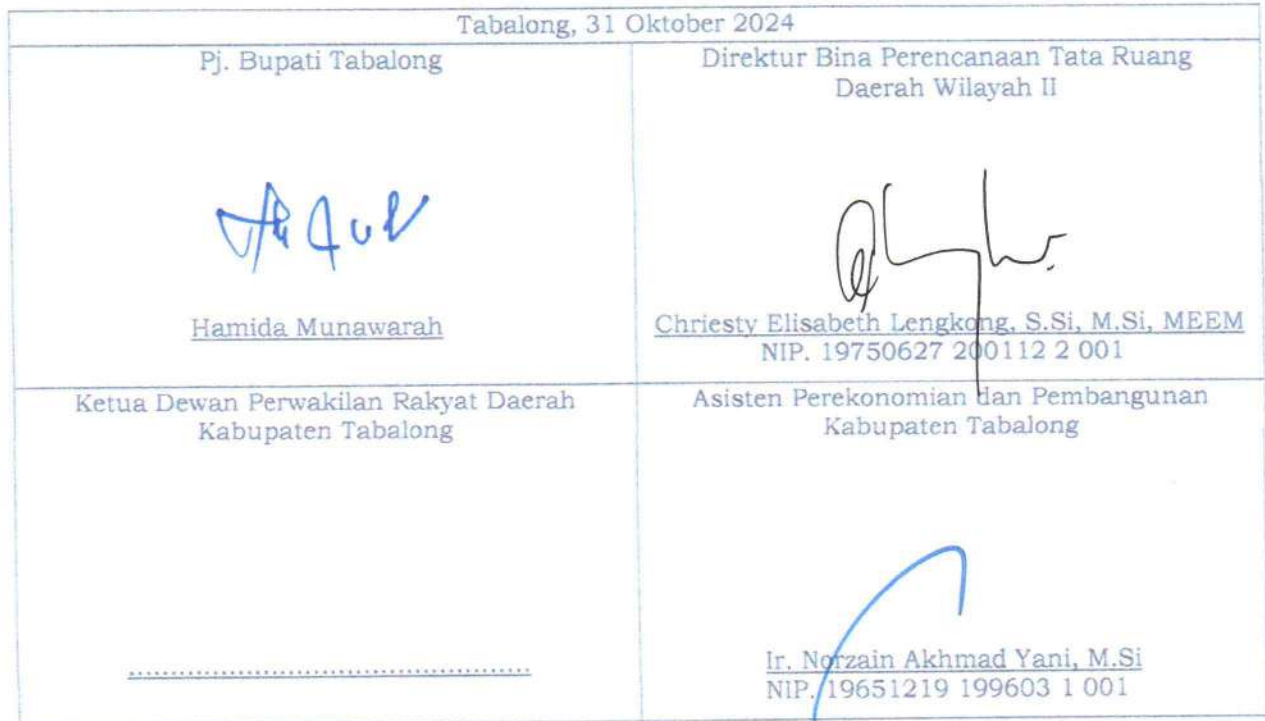 Tabalong, 31 Oktober 2024
Pj. Bupati Tabalong
Hamida Munawarah
Direktur Bina Perencanaan Tata Ruang
Daerah Wilayah II
Chriesty Elisabeth Lengkong, S.Si, M.Si, MEEM
NIP. 19750627 200112 2 001
Ketua Dewan Perwakilan Rakyat Daerah
Kabupaten Tabalong
..........................................
Asisten Perekonomian dan Pembangunan
Kabupaten Tabalong
Ir. Norzain Akhmad Yani, M.Si
NIP. 19651219 199603 1 001